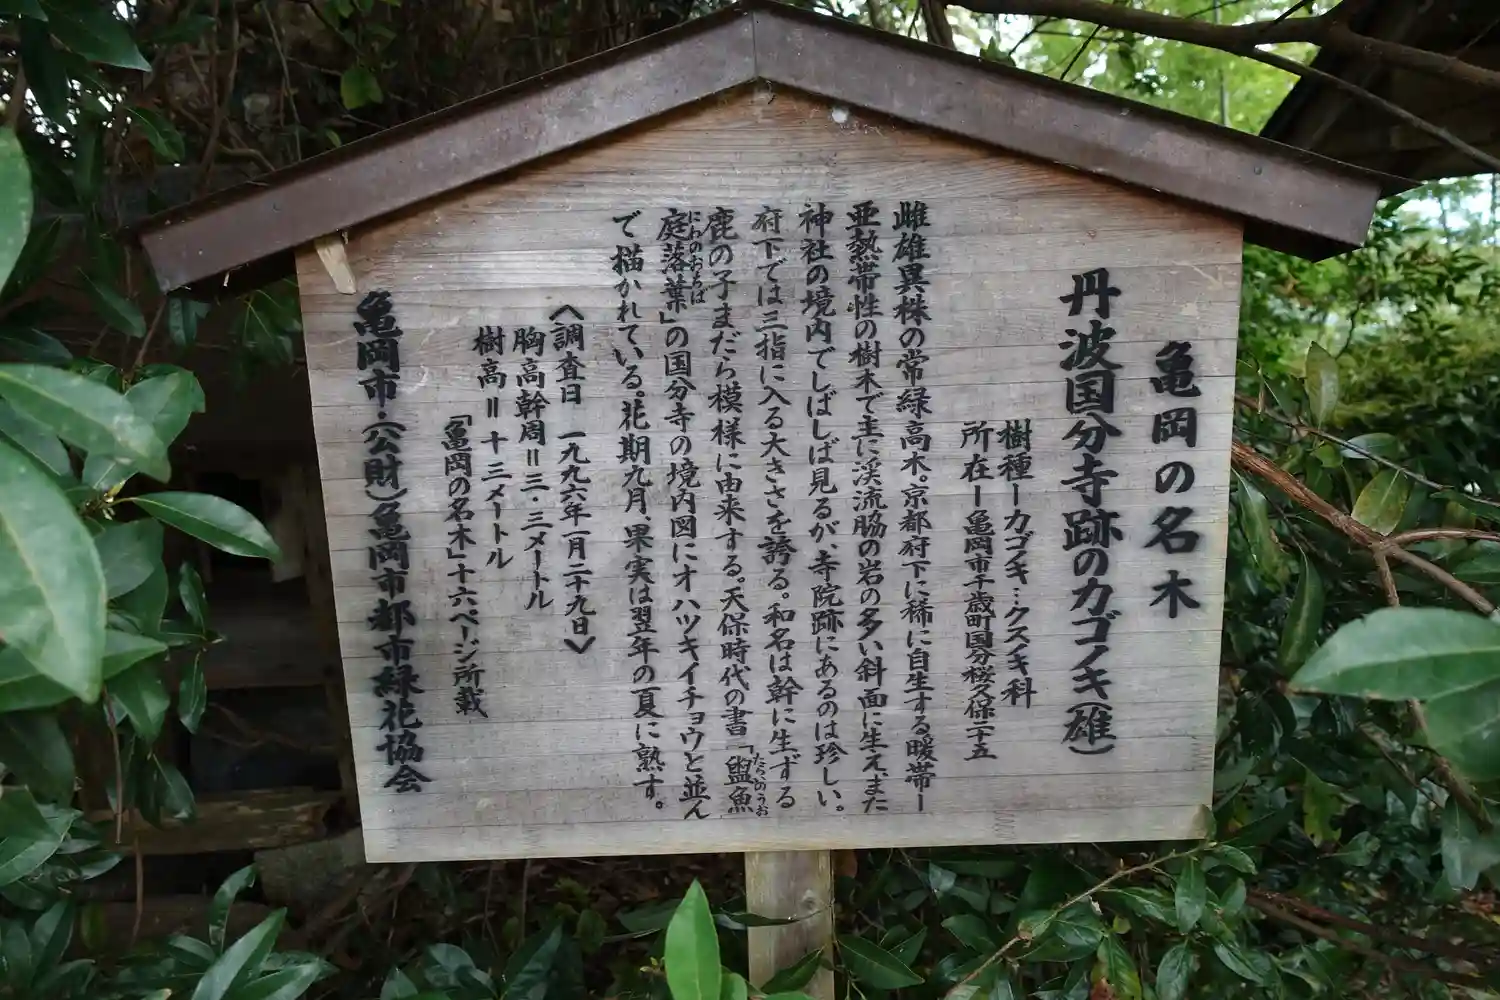 亀岡の名木
丹波国分寺跡のカゴノキ(雄)
樹種ーカゴノキ…クスノキ科
所在ー亀岡市千歳町国分桜久保二十五
雌雄異株の常緑高木。京都府下に稀に自生する暖帯ー
亜熱帯性の樹木で主に渓流脇の岩の多い斜面に生え、また
神社の境内でしばしば見るが、寺院跡にあるのは珍しい。
府下では三指に入る大きさを誇る。和名は幹に生ずる
鹿の子まだら模様に由来する。天保時代の書「盥魚
たらいのうお
庭落葉」の国分寺の境内図にオハツキイチョウと並ん
にわのおちば
で描かれている。花期九月、果実は翌年の夏に熟す。
〈調査日 一九九六年一月二十九日〉
胸高幹周=三・三メートル
樹高=十三メートル
「亀岡の名木」十六ページ所載
亀岡市・(公財)亀岡市都市緑花協会